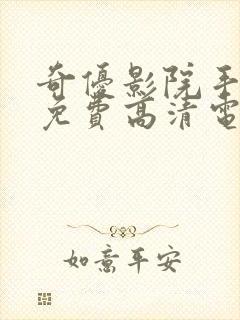 奇優影院手
免費高清電
如意平安